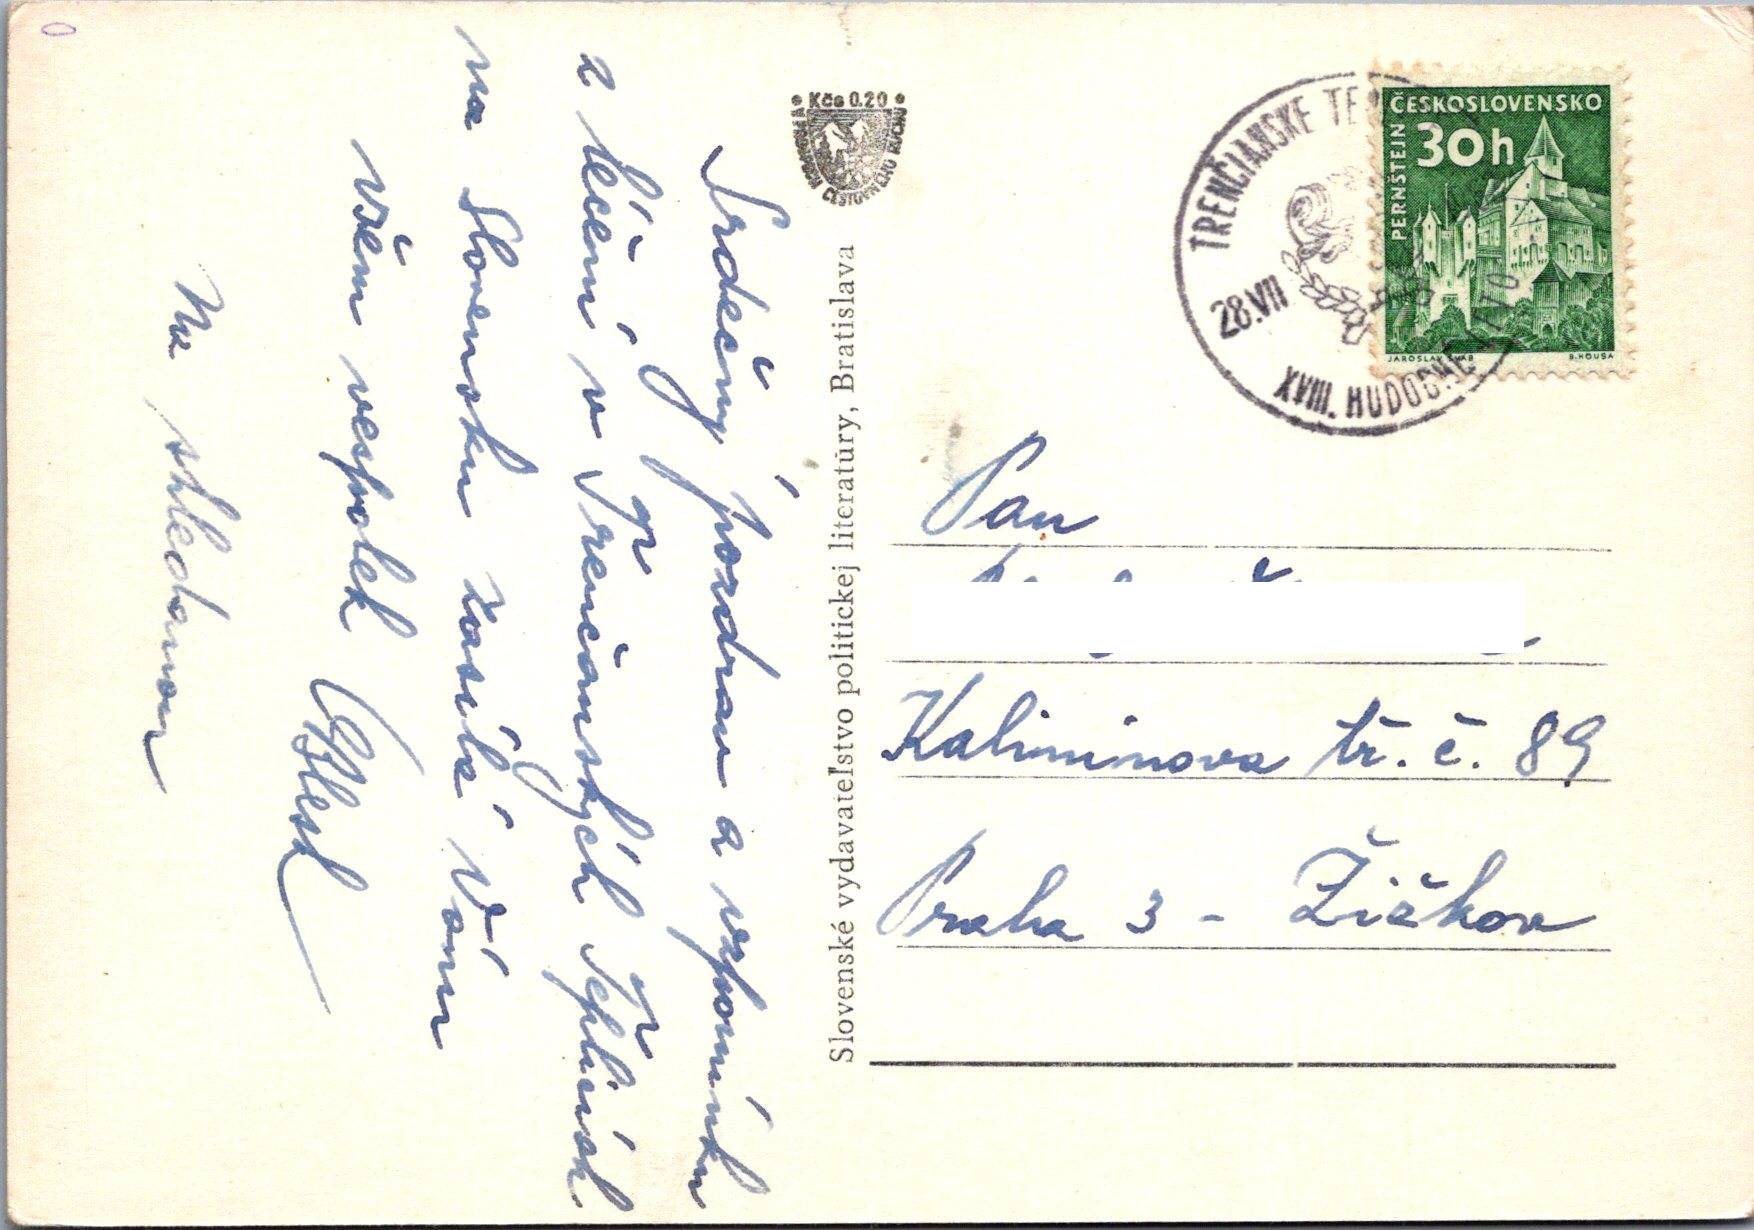 Srdečný pozdrav a vzpomínku
z léčení v Trenčanských Teplicích
na Slovensku zasílá Vám
všem vespolek
Na shledanou
Kčs 0.20
CESTOVNÉHO RUCHU
Slovenské vydavateľstvo politickej literatúry, Bratislava
TRENČIANSKE TE
28.VII
XVIII. HUDOBNÉ LETO
ČESKOSLOVENSKO
30h
PERNŠTEJN
JAROSLAV ŠVÁB
B. HOUSA
Pan
Kalininova tř. č. 89
Praha 3 - Žižkov